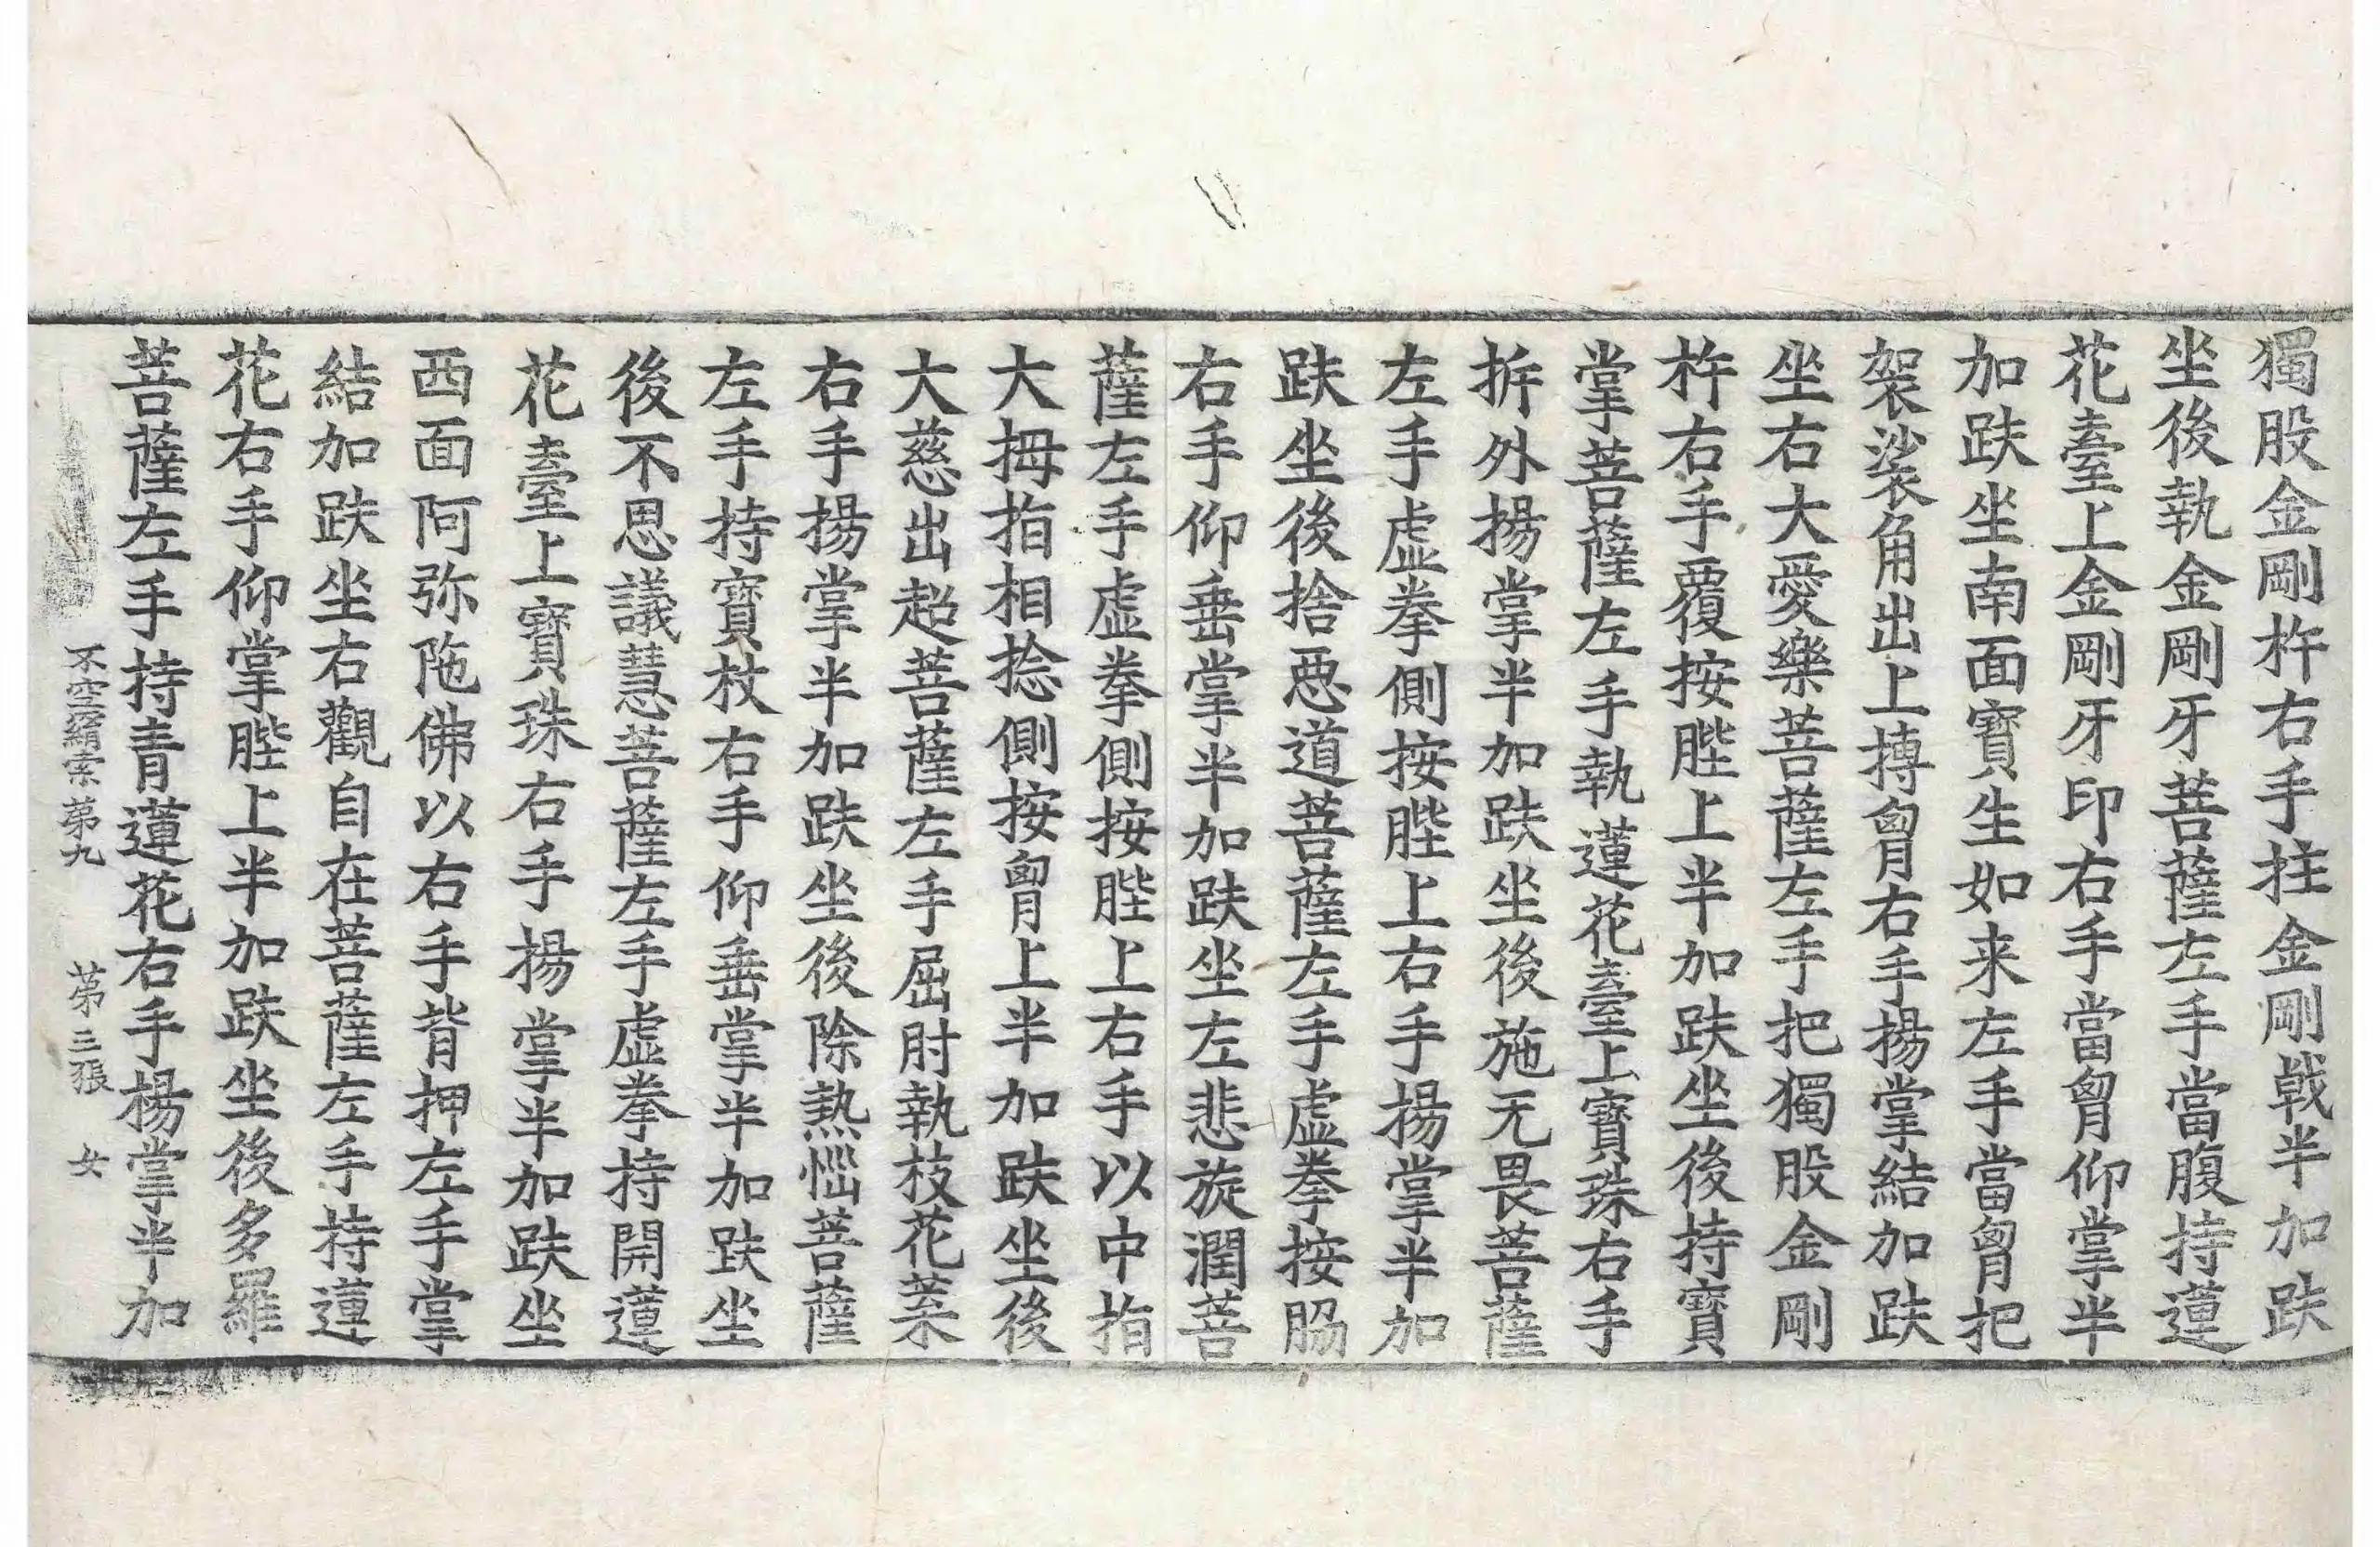 獨股金剛杵右手拄金剛戟半加趺
坐後執金剛牙菩薩左手當腹持蓮
花臺上金剛牙印右手當胷仰掌半
加趺坐南面寶生如来左手當胷把
袈裟角出上搏胷右手揚掌結加趺
坐右大愛樂菩薩左手把獨股金剛
杵右手覆按䏶上半加趺坐後持寶
掌菩薩左手執蓮花臺上寶珠右手
拆外揚掌半加趺坐後施无畏菩薩
左手虛拳側按䏶上右手揚掌半加
趺坐後捨惡道菩薩左手虛拳按脇
右手仰垂掌半加趺坐左悲旋潤菩
薩左手虛拳側按䏶上右手以中指
大拇指相捻側按胷上半加趺坐後
大慈出超菩薩左手屈肘執枝花菓
右手揚掌半加趺坐後除熱惱菩薩
左手持寶杖右手仰垂掌半加趺坐
後不思議慧菩薩左手虛拳持開蓮
花臺上寶珠右手揚掌半加趺坐
西面阿弥陁佛以右手背押左手掌
結加趺坐右觀自在菩薩左手持蓮
花右手仰掌䏶上半加趺坐後多羅
菩薩左手持青蓮花右手揚掌半加
不空羂索苐九 苐三張 女